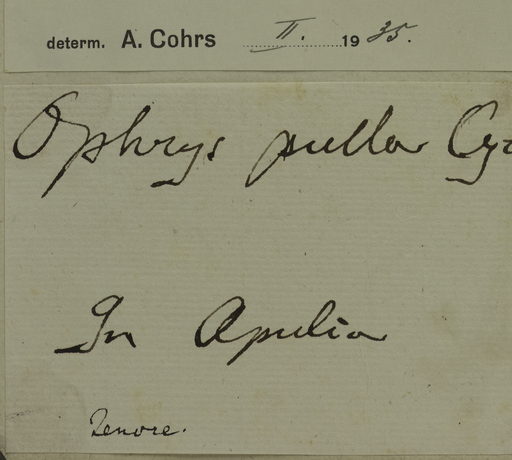 determ. A. Cohrs II. 1935.
Ophrys pulla Cyr
In Apulia
Tenore.